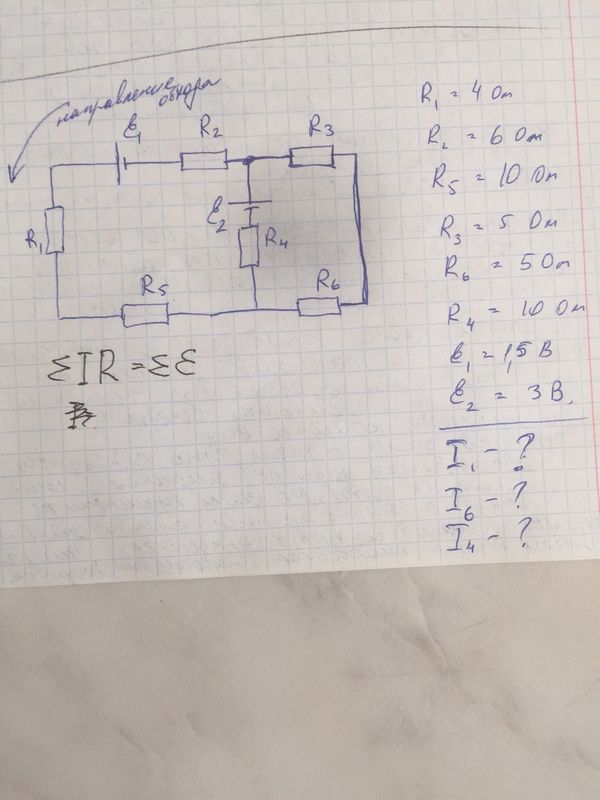 направление
обхода
Ɛ₁
R₂
R₃
Ɛ₂
R₄
R₁
R₅
R₆
ΣIR = ΣƐ
R₁ = 4 Ом
R₂ = 6 Ом
R₅ = 10 Ом
R₃ = 5 Ом
R₆ = 5 Ом
R₄ = 10 Ом
Ɛ₁ = 1,5 В
Ɛ₂ = 3 В.
I₁ - ?
I₆ - ?
I₄ - ?